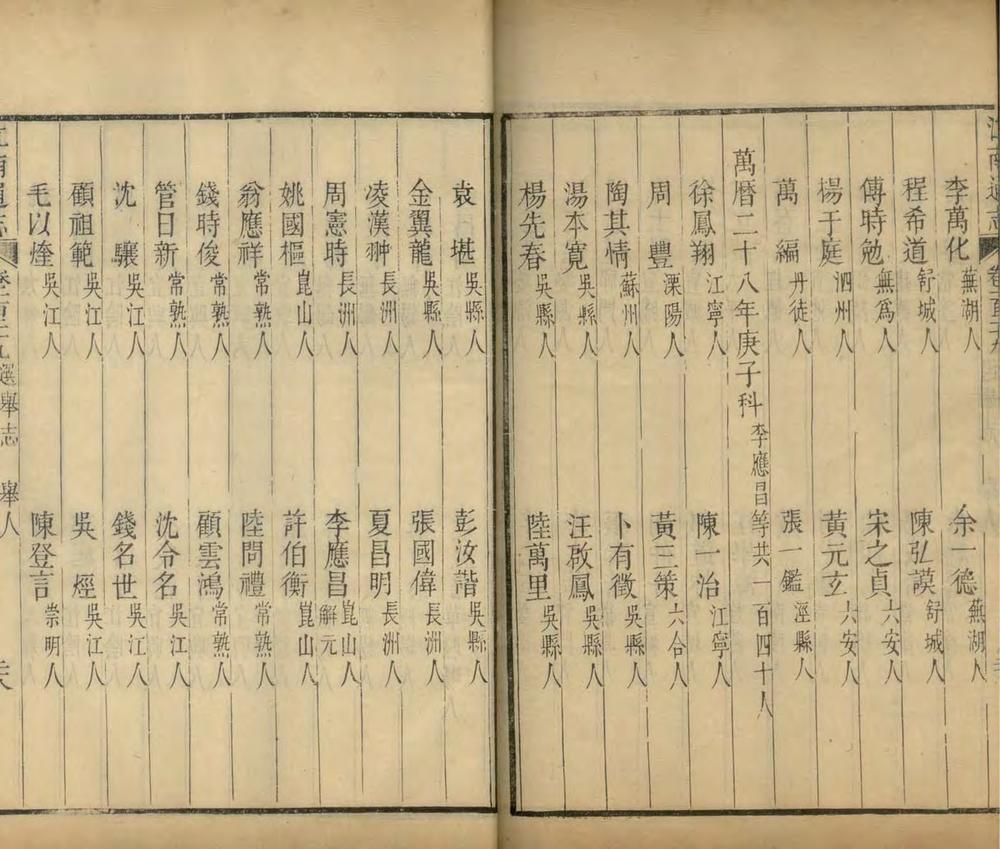 李萬化 蕪湖人 余一德 蕪湖人
程希道 舒城人 陳弘謨 舒城人
傅時勉 無爲人 宋之貞 六安人
楊于庭 泗州人 黃元玄 六安人
萬編 丹徒人 張一鑑 涇縣人
萬曆二十八年庚子科 李應昌等共一百四十人
徐鳳翔 江寧人 陳一治 江寧人
周豐 溧陽人 黃三策 六合人
陶其情 蘇州人 卜有徵 吳縣人
湯本寬 吳縣人 汪啟鳳 吳縣人
楊先春 吳縣人 陸萬里 吳縣人
袁堪 吳縣人 彭汝諧 吳縣人
金翼龍 吳縣人 張國偉 長洲人
凌漢翀 長洲人 夏昌明 長洲人
周憲時 長洲人 李應昌 崑山人 解元
姚國樞 崑山人 許伯衡 崑山人
翁應祥 常熟人 陸問禮 常熟人
錢時俊 常熟人 顧雲鴻 常熟人
管日新 常熟人 沈令名 吳江人
沈驤 吳江人 錢名世 吳江人
顧祖範 吳江人 吳烴 吳江人
毛以燧 吳江人 陳登言 崇明人
選舉志 舉人